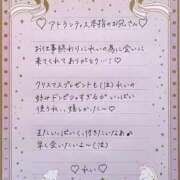 アトランティス本指のお兄さん♡
お仕事終わりにれいの為に会いに
来てくれてありがとう…！♡
クリスマスプレゼントも(泣)れいの
好みドンピシャすぎるがいっぱい
使うれ、嬉しかた〜♡
またいっぱいぎゅ〜付きたいなぁ
早く会いたいよ〜(泣)
♡れい♡